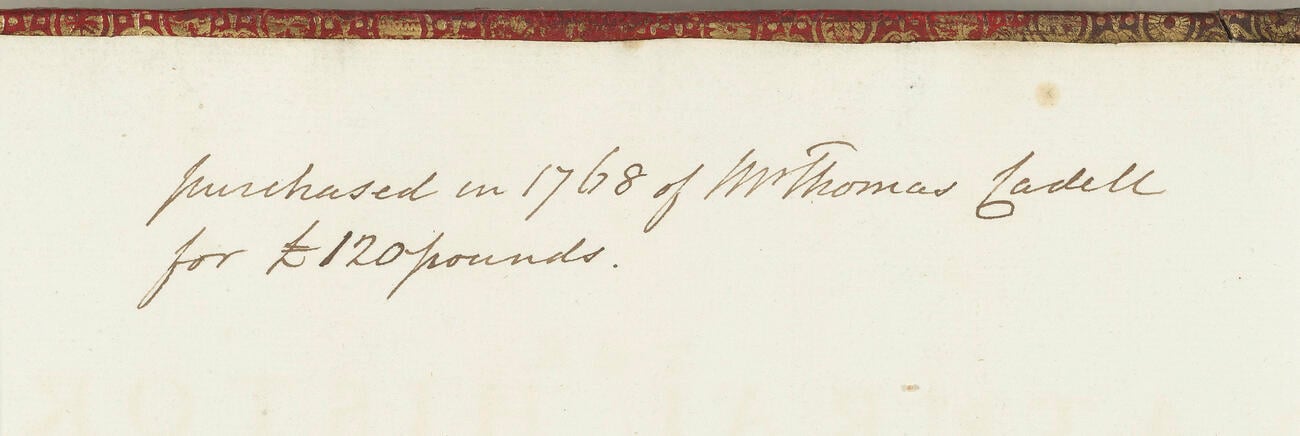 purchased in 1768 of Mr Thomas Cadell
for £120 pounds.